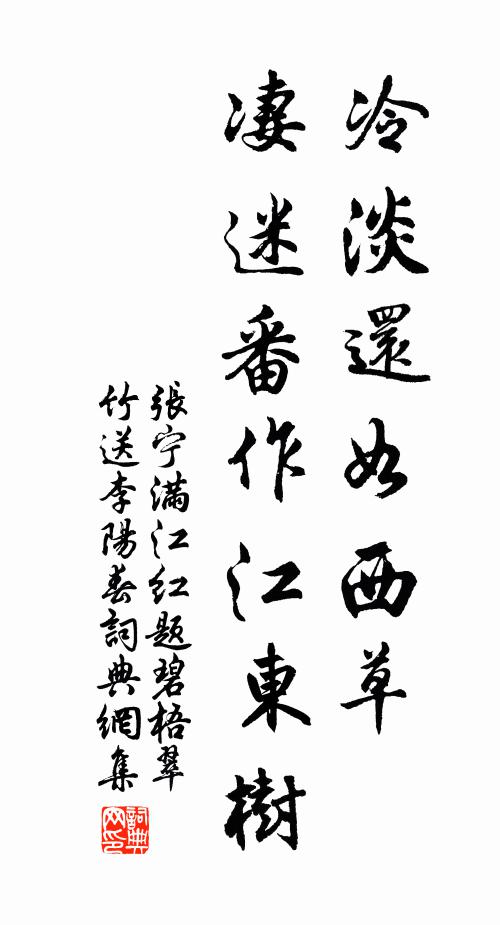 冷淡還如西草
凄迷番作江東樹
張宁滿江紅題碧梧翠
竹送李陽春詞典網集
詞典網印